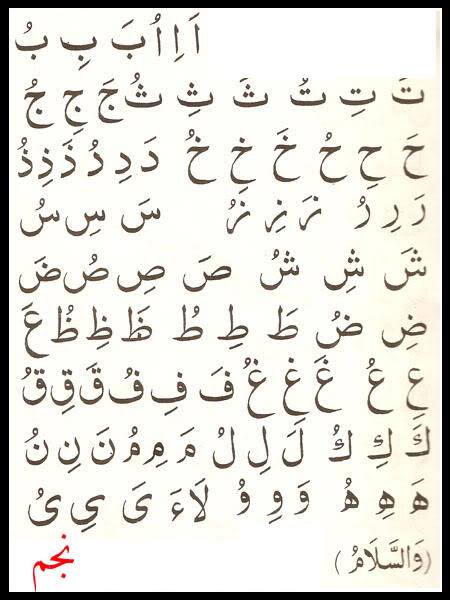 اَ اِ اُ بَ بِ بُ
تَ تِ تُ ثَ ثِ ثُ جَ جِ جُ
حَ حِ حُ خَ خِ خُ دَ دِ دُ ذَ ذِ ذُ
رَ رِ رُ زَ زِ زُ سَ سِ سُ
شَ شِ شُ صَ صِ صُ ضَ
ضِ ضُ طَ طِ طُ ظَ ظِ ظُ عَ
عِ عُ غَ غِ غُ فَ فِ فُ قَ قِ قُ
كَ كِ كُ لَ لِ لُ مَ مِ مُ نَ نِ نُ
هَ هِ هُ وَ وِ وُ لَاءَ يَ يِ يُ
(وَالسَّلَامُ) نجم